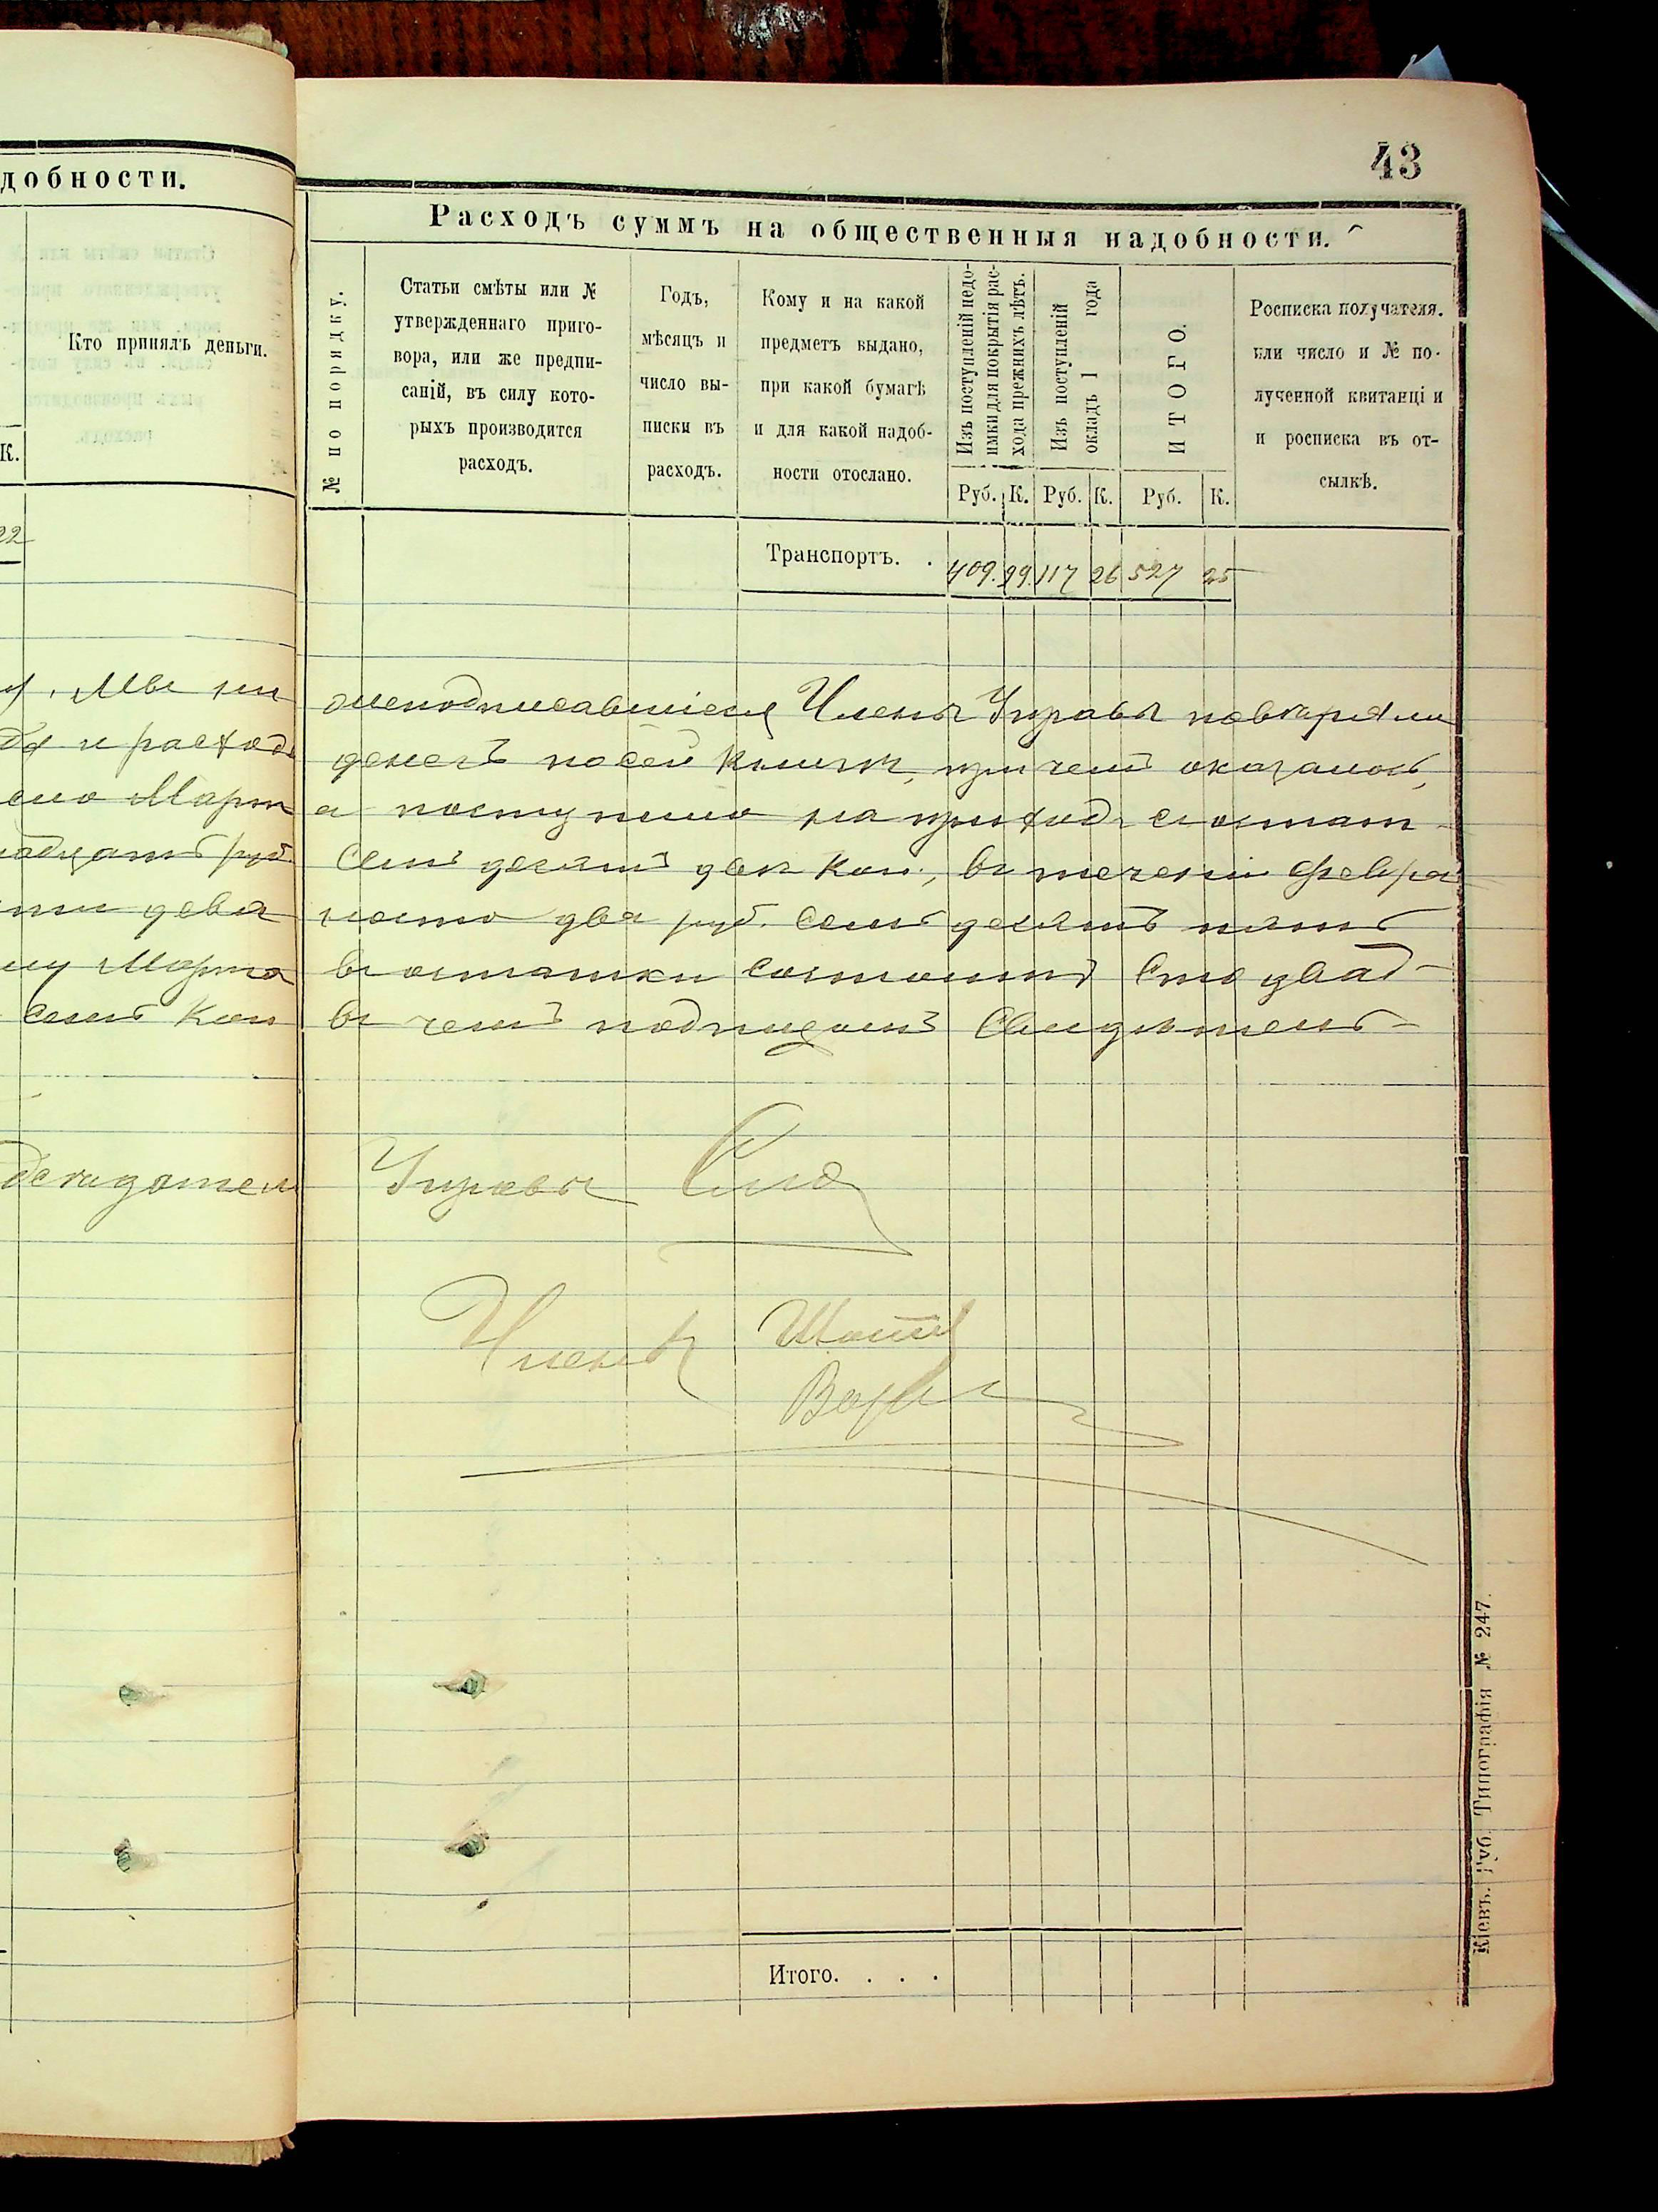 43
добности.
Кто принялъ деньги.
К.
22
Мы ни
да и расходъ
Март
надцать руб.
дева
Марта
Семь Коп
Расходъ суммъ на общественныя надобности.
№ по порядку.
Статьи смѣты или №
утвержденнаго приго-
вора, или же предпи-
саній, въ силу кото-
рыхъ производится
расходъ.
Годъ,
мѣсяцъ и
число вы-
писки въ
расходъ.
Кому и на какой
предметъ выдано,
при какой бумагѣ
и для какой надоб-
ности отослано.
Изъ поступленій недо-
имки для покрытія рас-
хода прежнихъ лѣтъ.
Изъ поступленій
окладъ 1 года
ИТОГО.
Росписка получателя.
или число и № по-
лученной квитанціи
и росписка въ от-
сылкѣ.
Руб. К. Руб. К. Руб. К.
Транспортъ. . 409. 99. 117 26 527 25
жеподписавшіеся Члены Управы повѣряли
денегъ по сей книги, при чемъ оказалось,
а поступило на приходъ съ остат-
Семь десятъ две Коп., въ теченіи Февра
носто два руб. Семь десятъ пять
въ остатки состоитъ Сто двад-
въ чемъ подписомъ Свидѣтель-
Управы
Члены
Итого. . . .
Кіевъ. Губ. Типографія № 247.